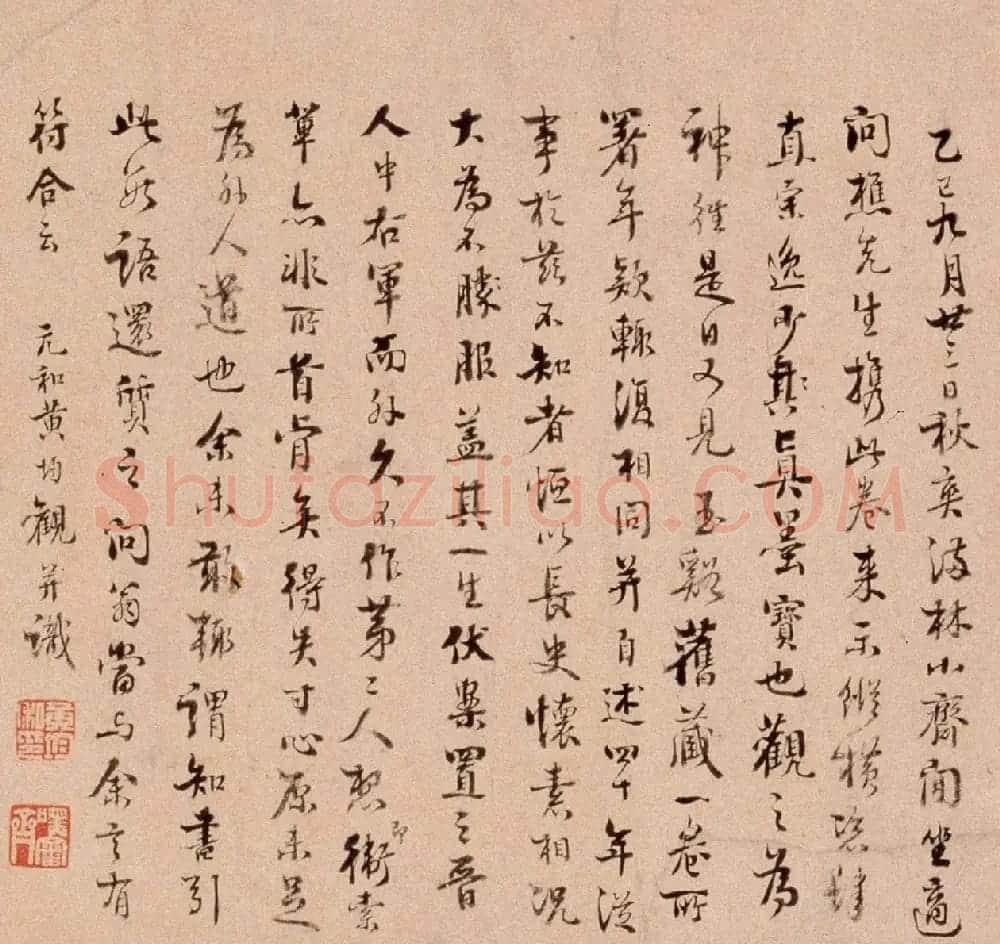 乙巳九月廿三日秋爽满林小齋閒坐適
问樵先生携此卷来示縱横恣肆
直宗逸少真墨寶也觀之為
神往是日又見 玉谿舊藏一卷所
署年款輒復相同并自述四十年從
事於兹不知者恒以長史懷素相况
大為不勝服盖其一生伏案置之晋
人中右軍而外久不作第二人想即衛索
輩亦非所首肯矣得失寸心原未足
為外人道也余未敢輒謂知書引
此數語還質之问翁當与余言有
符合云 元和黄均觀并識
Shufaziliao.COM